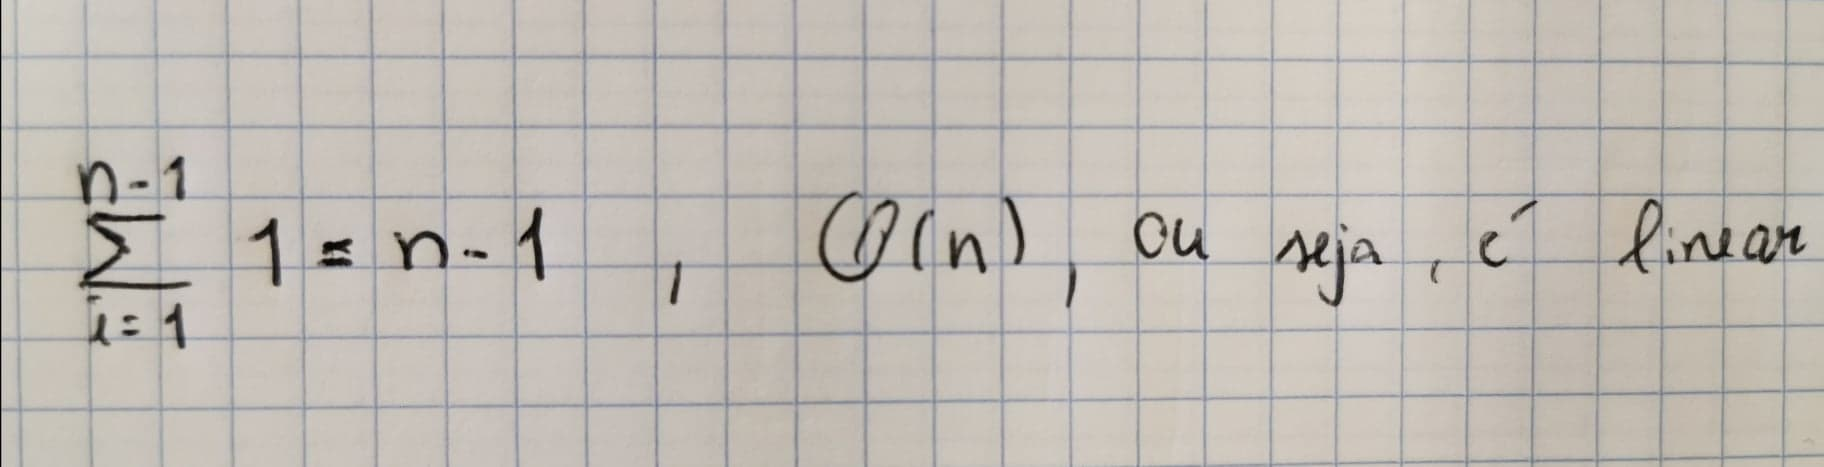 n-1
∑ 1 = n-1 , O(n), ou seja, é linear
i=1